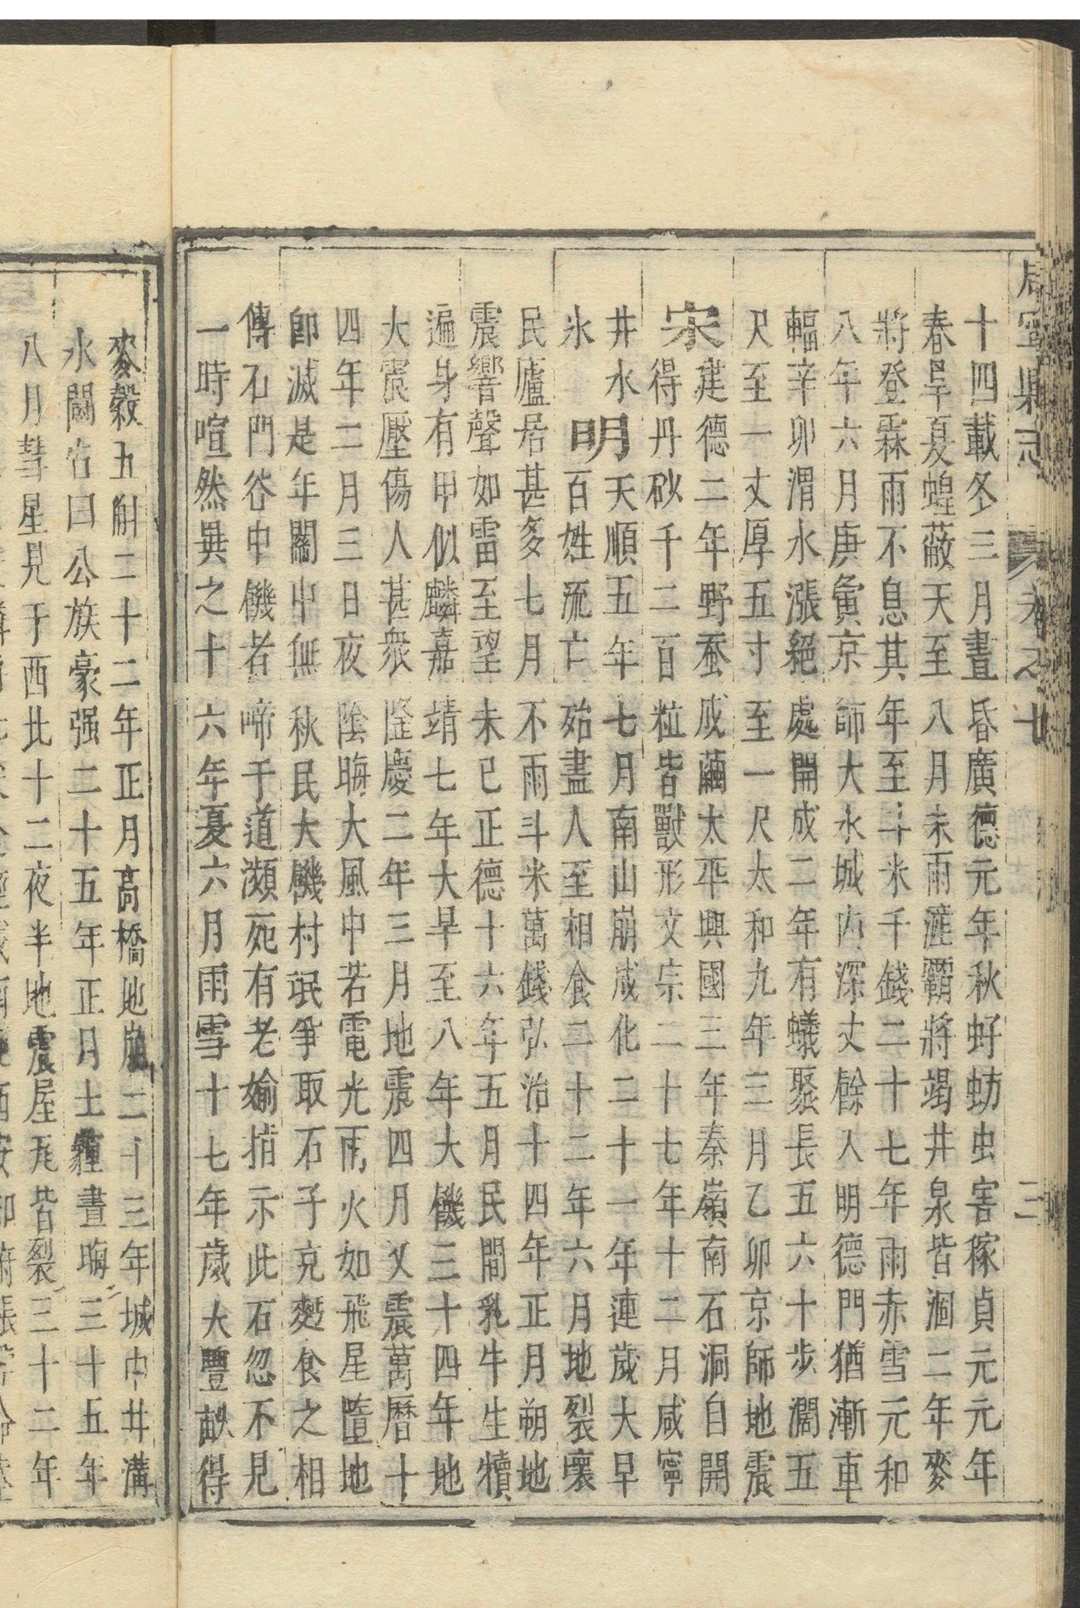 咸寧縣志 卷之七 二
十四載冬三月晝昏廣德元年秋虸蚄虫害稼貞元元年
春旱夏蝗蔽天至八月未雨滻灞將竭井泉皆涸二年麥
將登霖雨不息其年至斗米千錢二十七年雨赤雪元和
八年六月庚寅京師大水城內深丈餘入明德門猶漸車
輻辛卯渭水漲絕處開成二年有蟻聚長五六十步濶五
尺至一丈厚五寸至一尺太和九年三月乙卯京師地震
宋建德二年野蚕成繭太平興國三年秦嶺南石洞自開
得丹砂千二百粒皆獸形文宗二十七年十二月咸寧
井水 明天順五年七月南山崩成化二十一年連歲大旱
氷 百姓流亡殆盡人至相食二十二年六月地裂壞
民廬居甚多七月不雨斗米萬錢弘治十四年正月朔地
震響聲如雷至望未已正德十六年五月民間乳牛生犢
遍身有甲似麟嘉靖七年大旱至八年大饑三十四年地
大震壓傷人甚衆隆慶二年三月地震四月又震萬曆十
四年二月三日夜陰晦大風中若電光雨火如飛星墮地
卽滅是年關中無秋民大饑村氓爭取石子充麫食之相
傳石門谷中饑者啼于道瀕死有老媮指示此石忽不見
一時喧然異之十六年夏六月雨雪十七年歲大豐畝得
麥穀五斛二十二年正月高橋地崩二十三年城中井溝
水鬬占曰公族豪强二十五年正月土霾晝晦三十五年
八月彗星見于西北十二夜半地震屋瓦皆裂三十二年